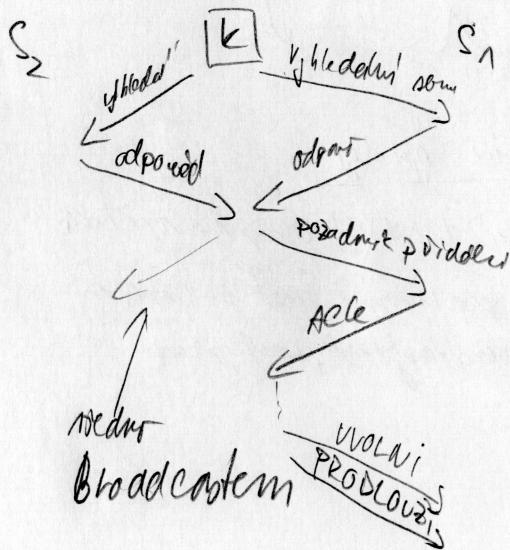 S2
K
S1
vyhledání
vyhledání serv
odpověd
odpověď
požadavek přidělení
ACK
všedno
Broadcastem
UVOLNI
PRODLOUŽI